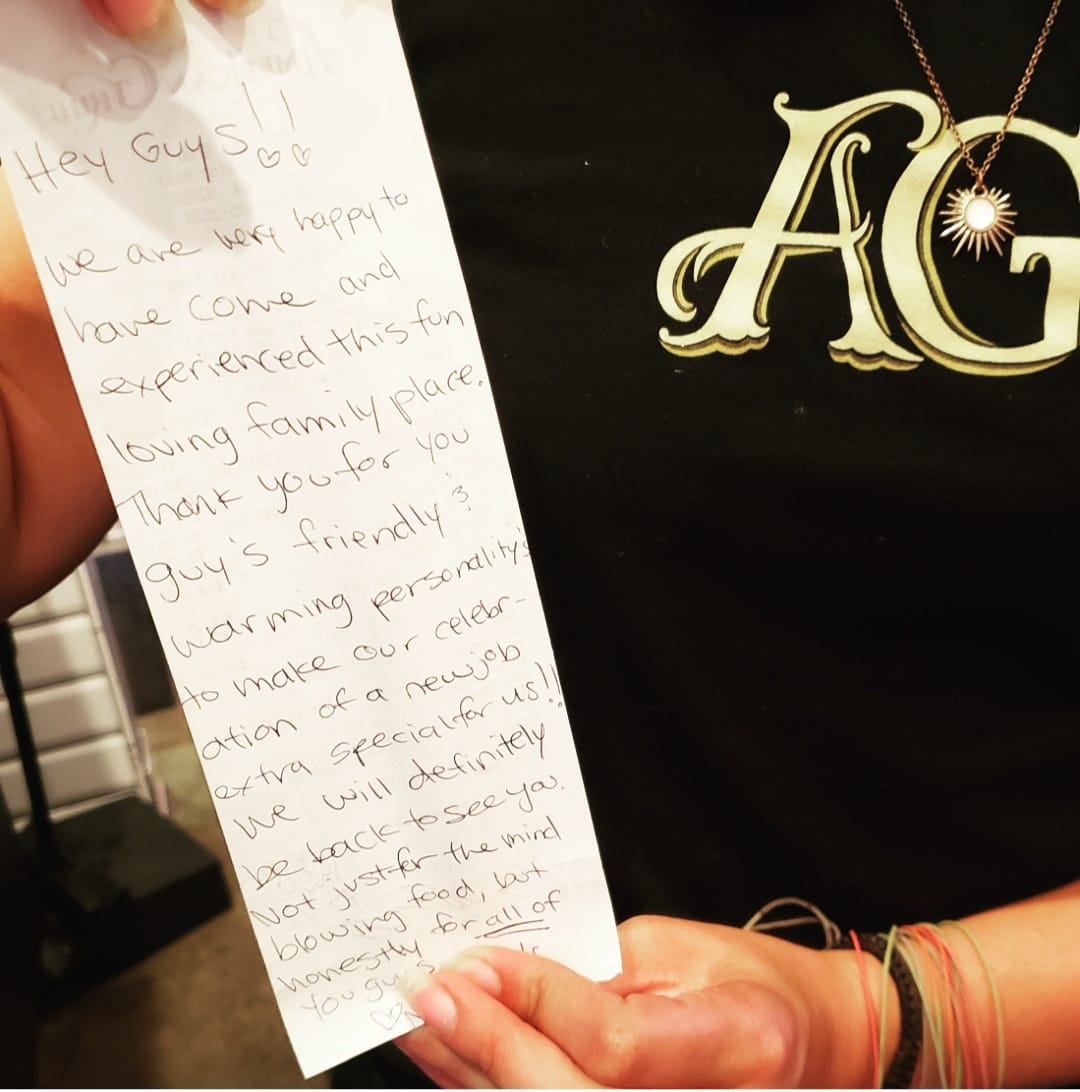 Hey Guys!!
we are very happy to
have come and
experienced this fun
loving family place.
Thank you for you
guy's friendly &
warming personality's
to make our celebr-
ation of a new job
extra special for us!!
We will definitely
be back to see ya.
Not just for the mind
blowing food, but
honestly for all of
you guys
AG